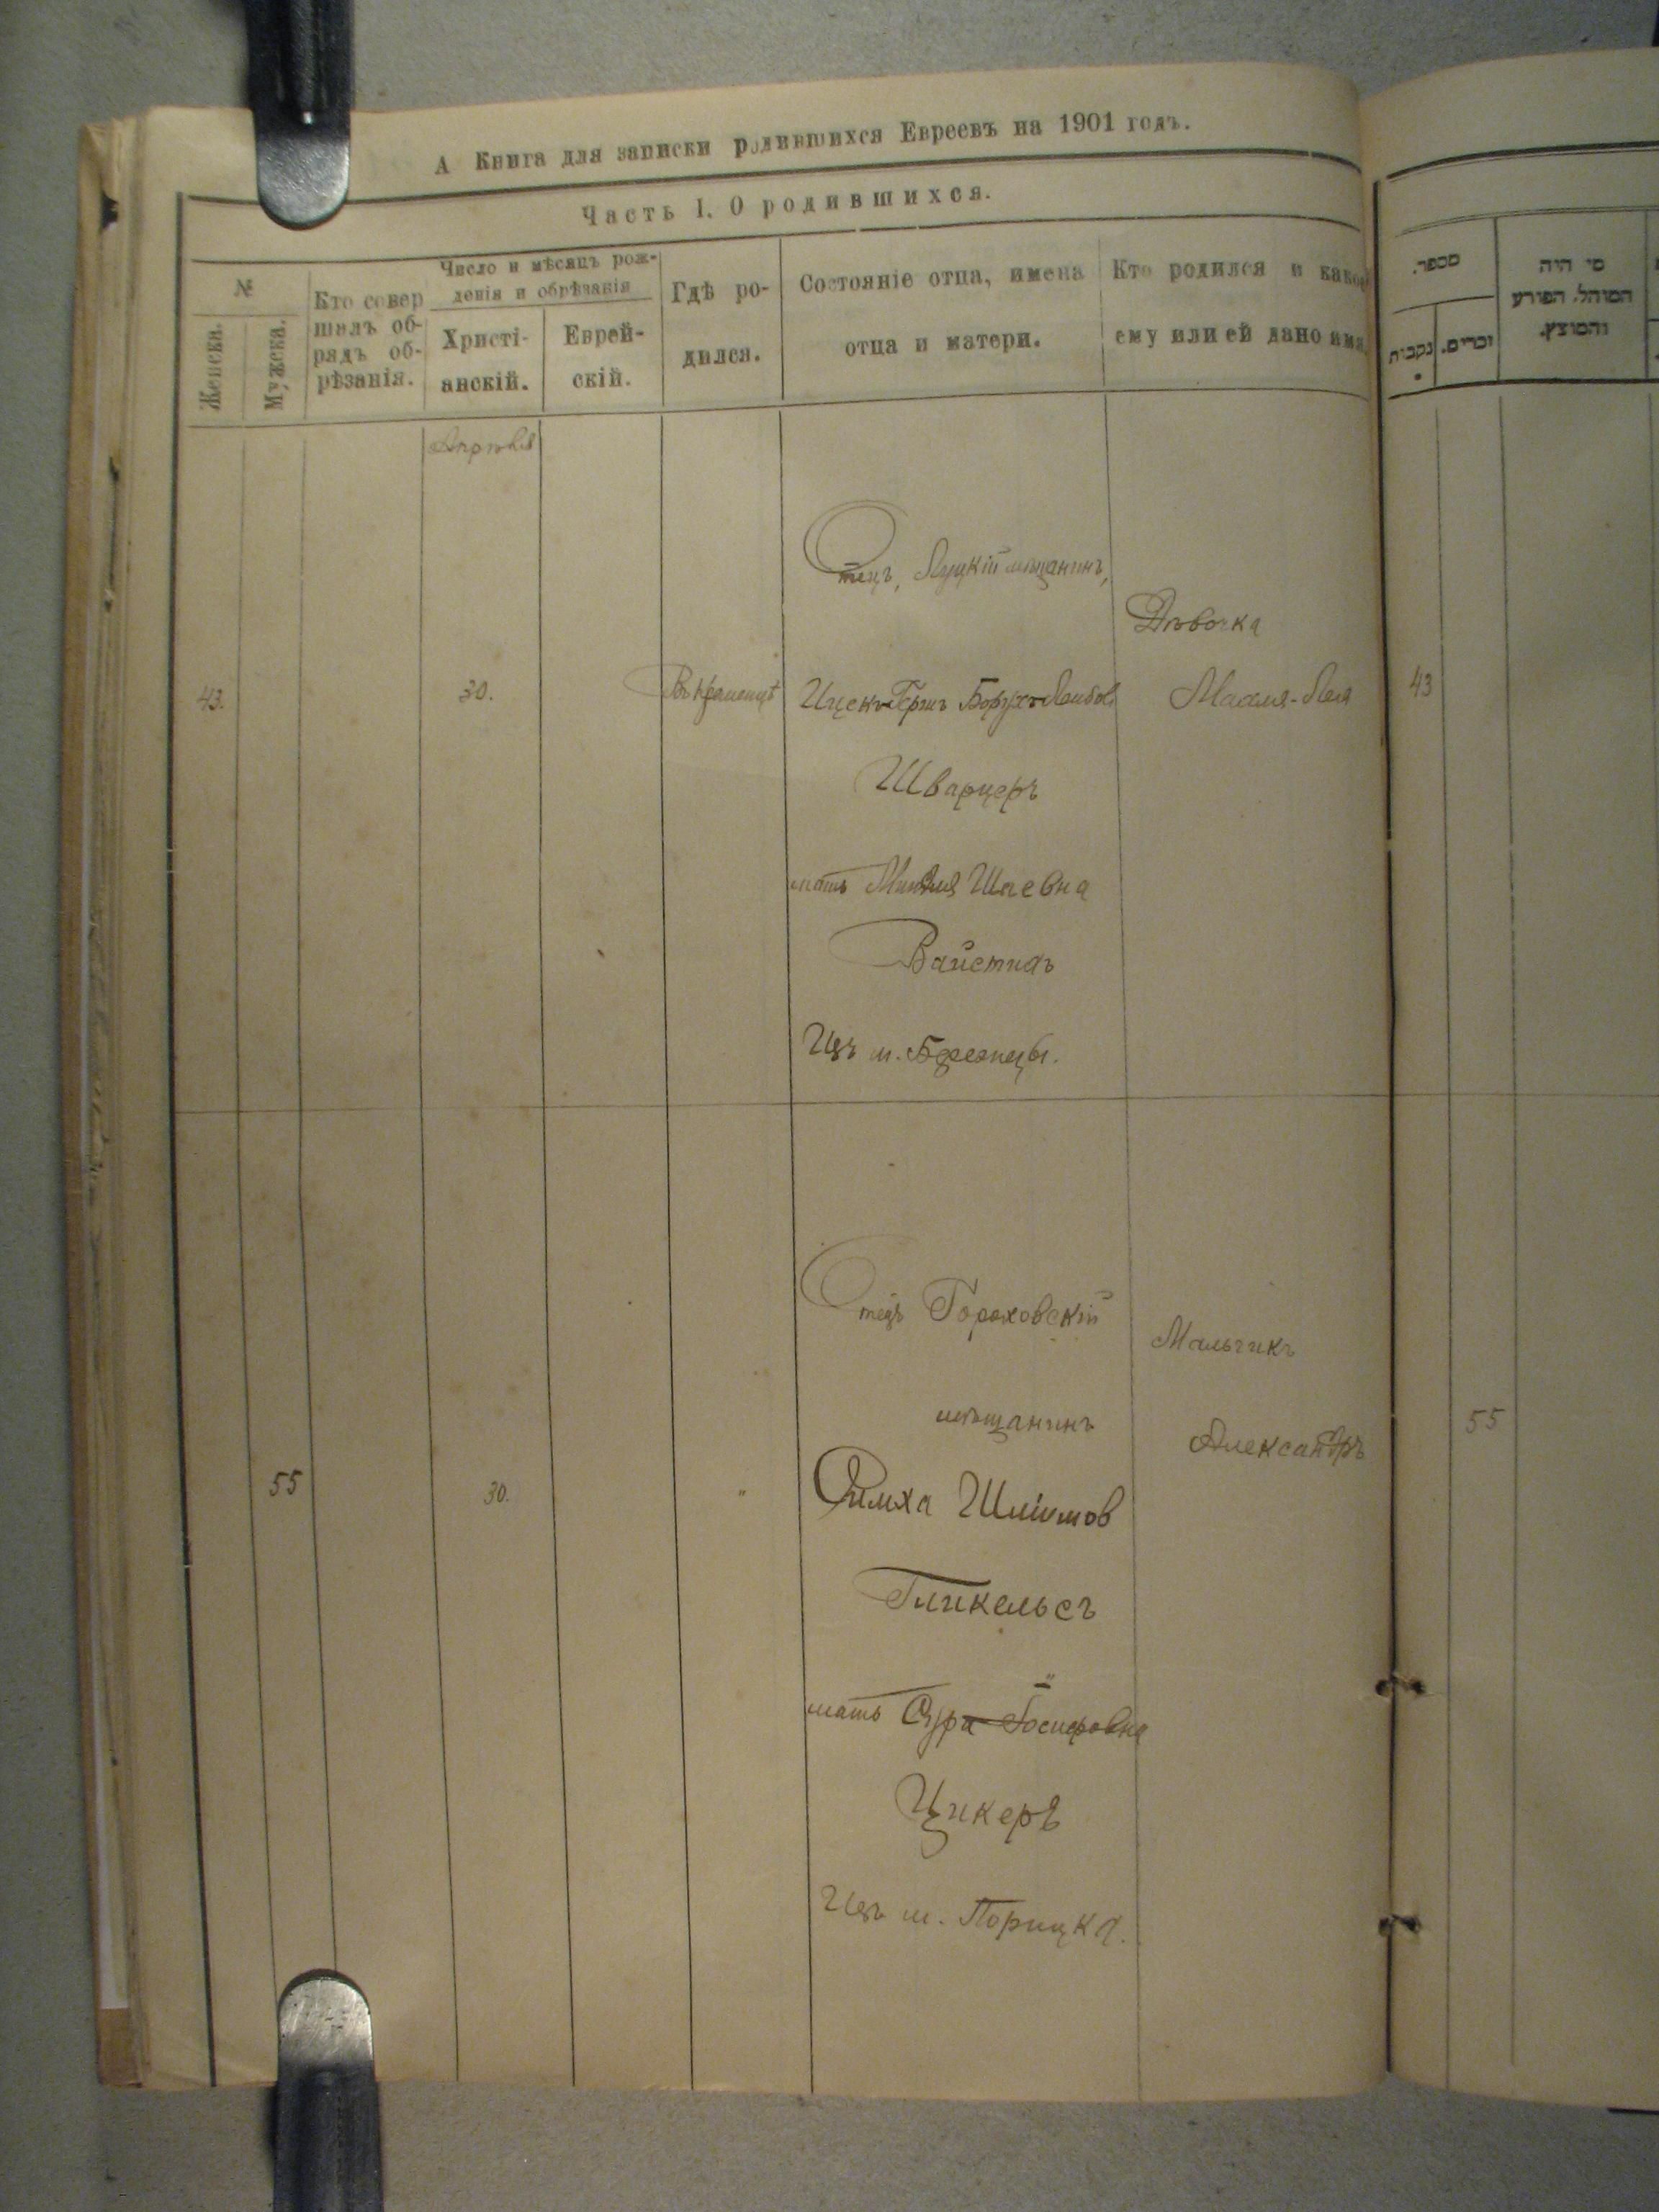 А Книга для записки родившихся Евреевъ на 1901 годъ.
Часть I. О родившихся.
№
Женска.
Мужска.
Кто совер
шалъ об-
рядъ об-
рѣзанія.
Число и мѣсяцъ рож-
денія и обрѣзанія
Христі-
анскій.
Еврей-
скій.
Гдѣ ро-
дился.
Состояніе отца, имена
отца и матери.
Кто родился и какое
ему или ей дано имя
Апрѣля
43.
30.
Въ Кременцѣ
Отецъ, Луцкій мѣщанинъ,
Ицекъ-Гершъ Борухъ-Лейбов
Шварцеръ
мать Шаевна
Вайстихъ
Изъ м. Бережцы.
Дѣвочка
55
30.
"
Отецъ Гороховскій
мѣщанинъ
Симха Шліомов
Гликельсъ
мать Сура Госифовна
Цикеръ
Изъ м. Порицка.
Мальчикъ
Александръ
מספר.
נקבות
זכרים.
מי היה
המוהל. הפורע
והמוצץ.
43
55